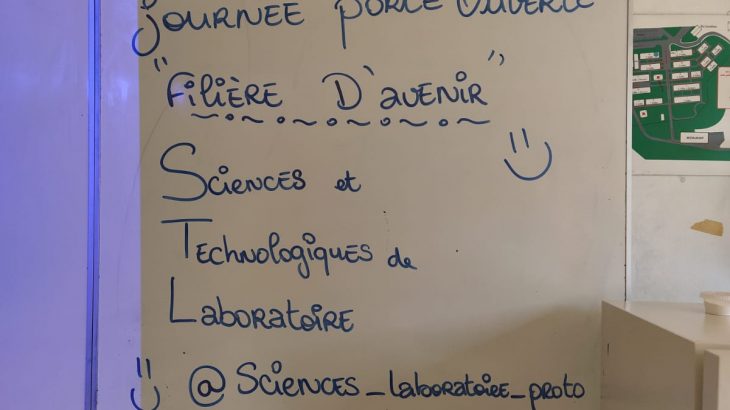 JOURNEE PORTE OUVERTE
"FILIÈRE D'AVENIR"
SCIENCES et
TECHNOLOGIQUES de
LABORATOIRE
@ SCIENCES_LABORATOIRE_PROTO